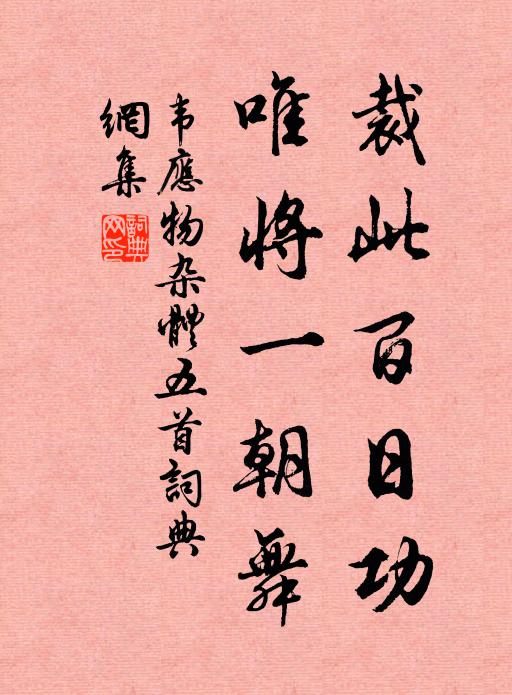 裁此百日功
唯将一朝舞
韦應物杂體五首詞典
網集
詞典网印